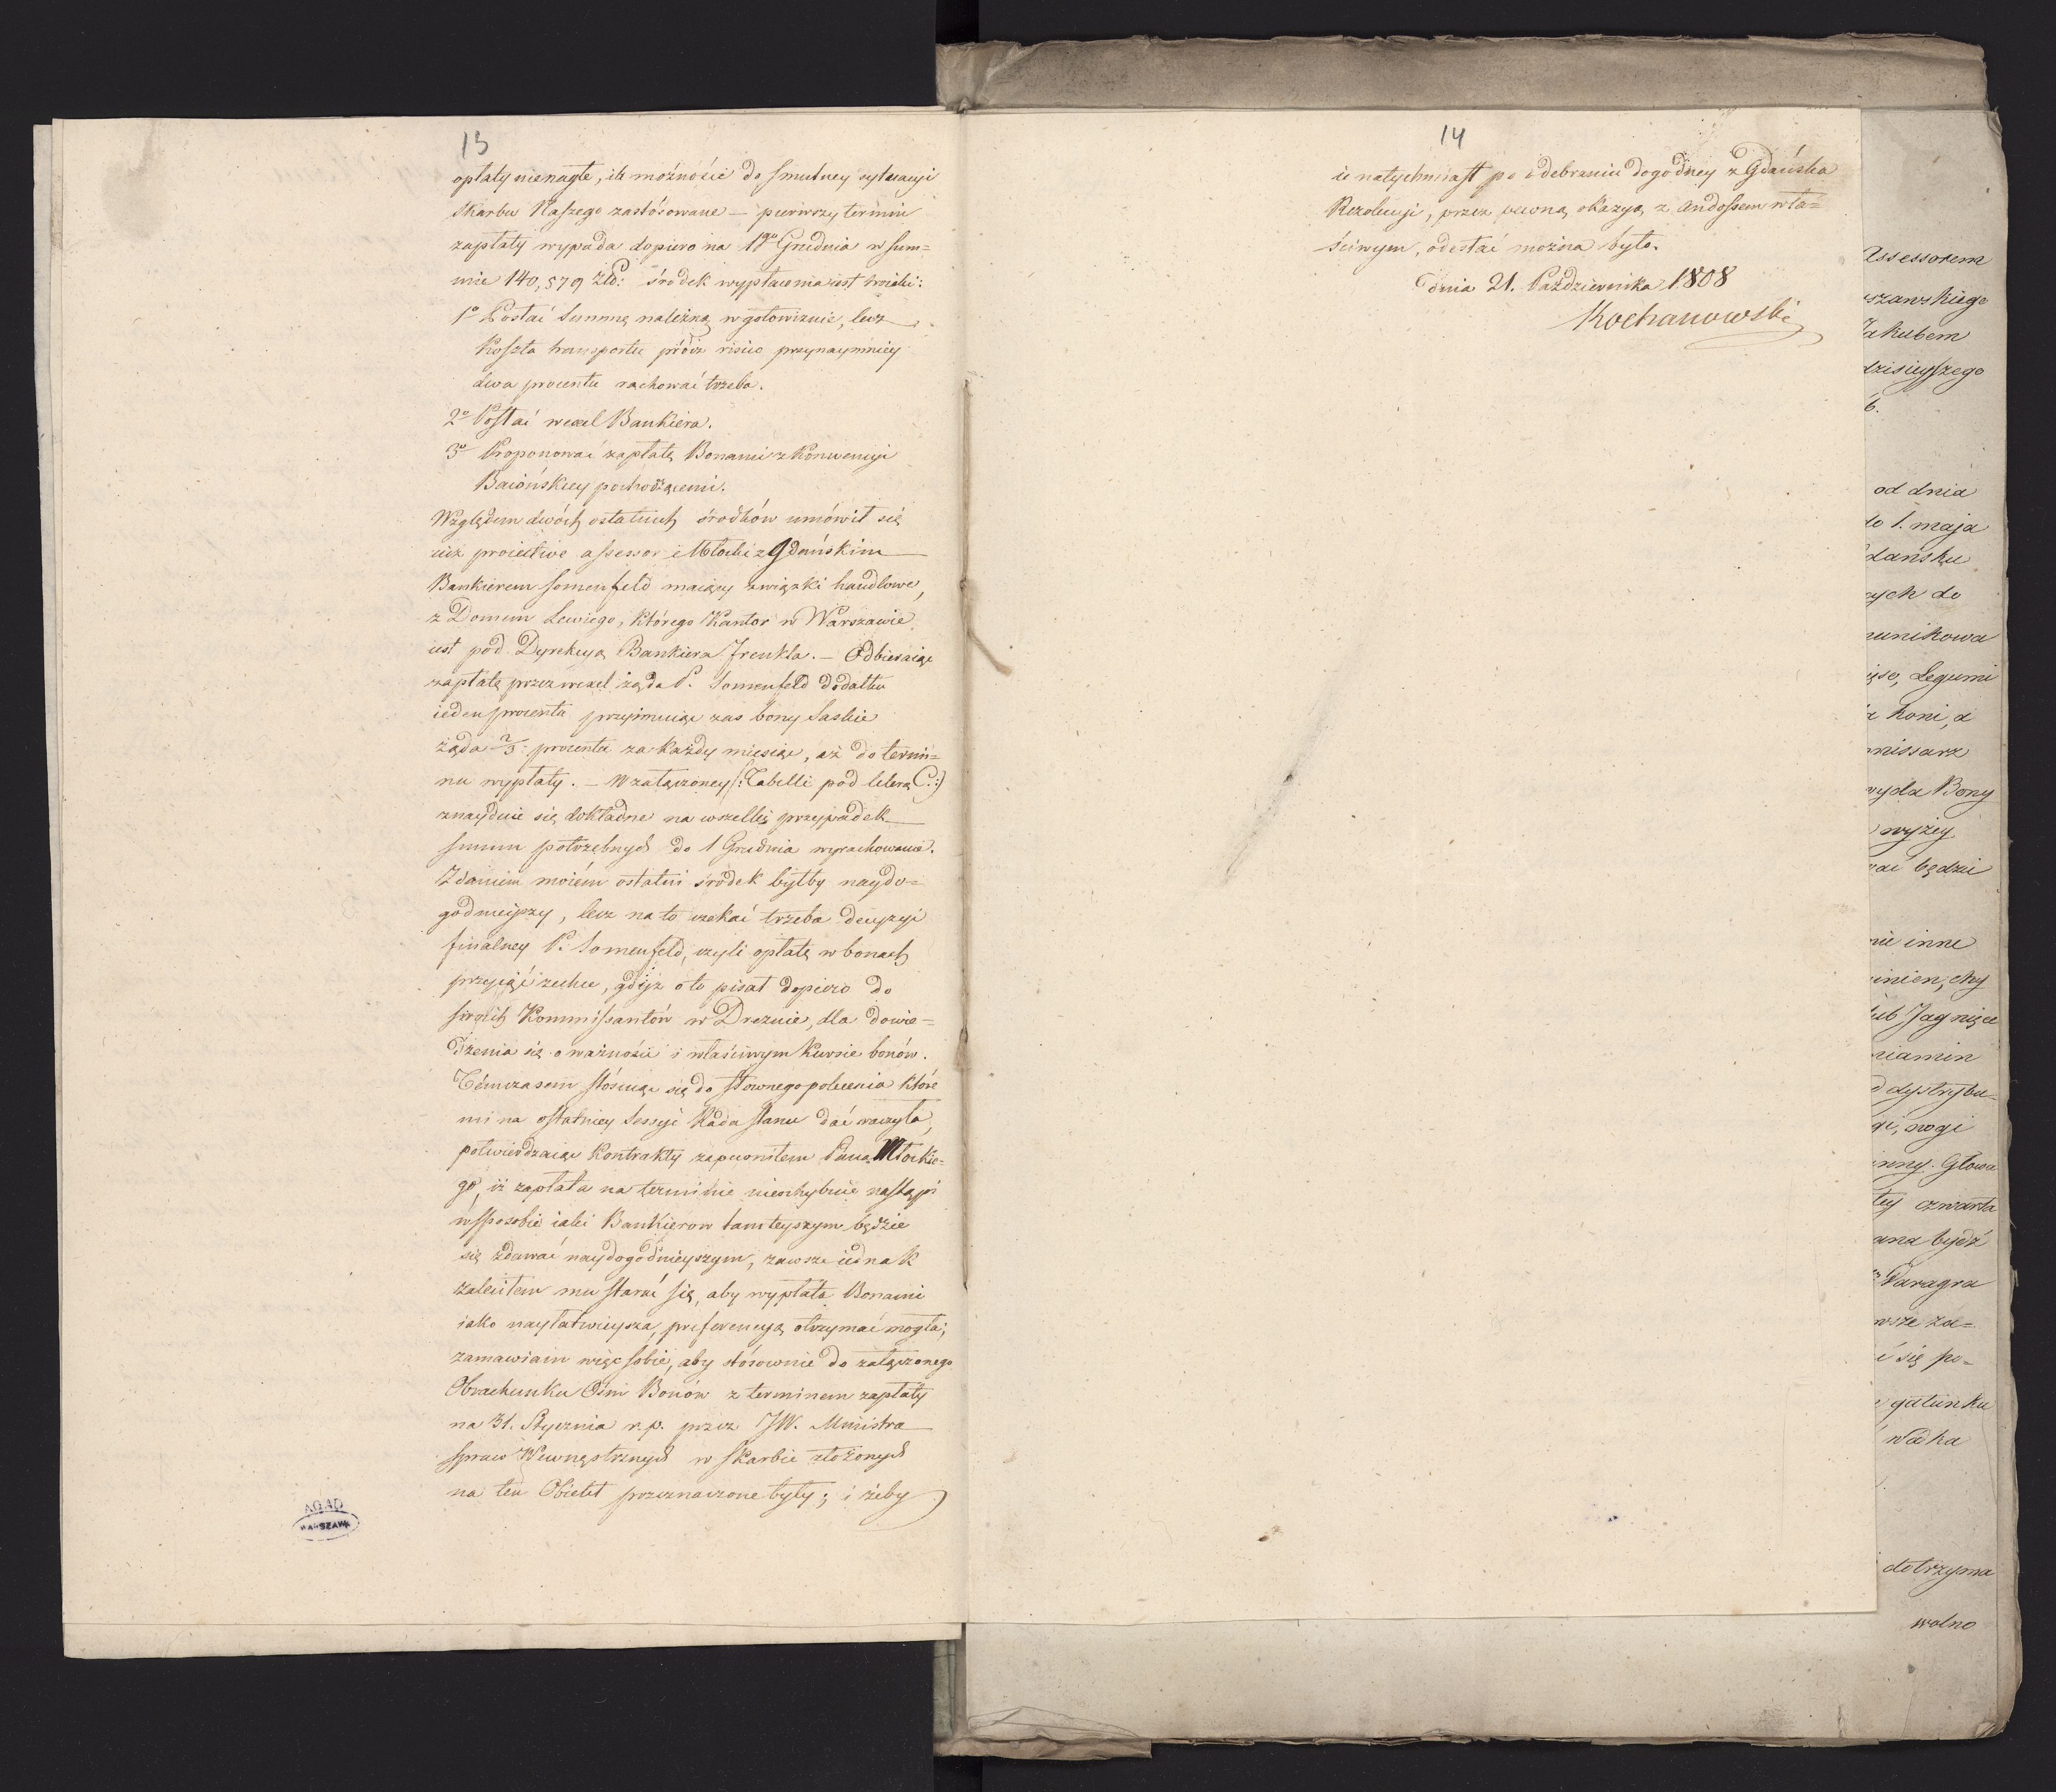 13
opłaty nienagłe, ile możności do smutney sytuacyi
skarbu Naszego zastósowane – pierwszy termin
zapłaty wypada dopiero na 1go Grudnia w sum=
mie 140,579 złp: środek wypłacenia iest troiaki:
1o Posłać Summę należną w gotowiznie, lecz
koszta transportu prócz risico przynaymniey
dwa procentu rachować trzeba.
2o Posłać wexel Bankiera.
3o Proponować zapłatę Bonami z Konwencyi
Baiońskiey pochodzącemi.
Względem dwóch ostatnich środków umówił się
iuż proiective assessor Młocki z Gdańskim
Bankierem Somenfeld maiący związki handlowe,
z Domem Lewiego, którego Kantor w Warszawie
iest pod Dyrekcyą Bankiera Frenkla. – Odbieraiąc
zapłatę przez wexel żąda P. Somenfeld dodatku
ieden procentu przyimuiąc zas bony Saskie
żąda 2/3: procentu za każdy miesiąc, aż do termi=
nu wypłaty. – W załączoney /: Tabelli pod literą C. :/
znayduie się dokładne na wszelki przypadek
summ potrzebnych do 1 Grudnia wyrachowanie.
Zdaniem moiém ostatni środek byłby naydo=
godnieyszy, lecz na to czekać trzeba decyzyi
finalney P. Somenfeld, czyli opłatę w bonach
przyiąć zechce, gdyż o to pisał dopiero do
swoich Kommissantów w Dreznie, dla dowie=
dzenia się o ważności i właściwym kursie bonów.
Témczasem stósuiąc się do słownego polecenia które
mi na ostatniey Sessyi Rada stanu dać raczyła,
potwierdzaiąc Kontrakty zapewniłem Pana Młockie=
go, iż zapłata na terminie nieochybnie nastąpi
w sposobie iaki Bankierow tamteyszym będzie
się zdawać naydogodnieyszym, zawsze iednak
zaleciłem mu starać się, aby wypłata Bonami
iako nayłatwieysza, preferencyą otrzymać mogła;
zamawiam więc sobie, aby stósownie do załączonego
Obrachunku Ośm Bonów z terminem zapłaty
na 31. Stycznia r. p. przez JW. Ministra
spraw Wewnętrznych w skarbie złożonych
na ten Obiekt przeznaczone były; i żeby
AGAD
WARSZAWA
14
ie natychmiast po odebraniu dogodney z Gdańska
Rezolucyi, przez pewną okazyą, z Andossem wła=
ściwym, odesłać można było.
dnia 21. Października 1808
Kochanowski
Assessorem
rszawskiego
Jakubem
dzisieyszego
6.
od dnia
do 1. maja
Gdańsku
ych do
munikowa
ięso, Legumi
koni, a
missarz
wyda Bony
wyżey
wać będzie
nie inne
inien, czy
lub Jagnięce
niamin
dystrybu
gi, nogi
inny. Głowa
tey czwarta
ana bydź
Paragra
wsze za=
ć się po=
gatunku
Wódka
dotrzyma
wolno